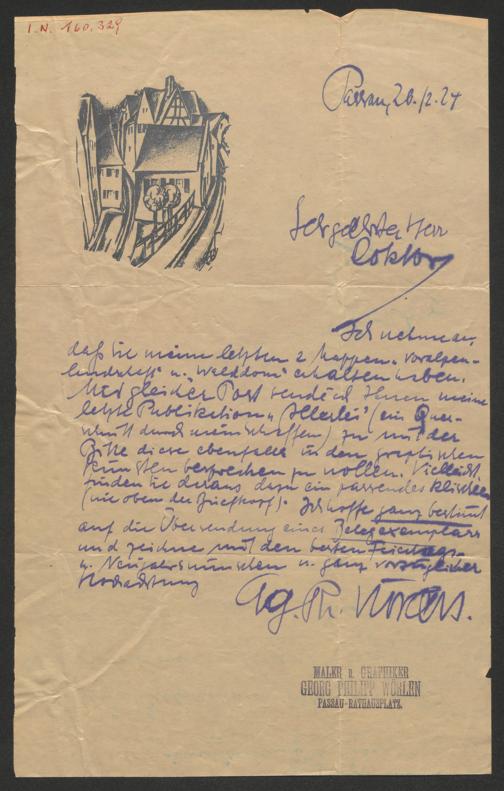 I.N. 160.329
Passau, 20./2.24
Sehr geehrter Herr
Doktor
Ich nehme an,
daß Sie meine letzten 2 Mappen „Voralpen-
landschaft" u. „Walddom" erhalten haben.
Mit gleicher Post sende ich Ihnen meine
letzte Publikation „Allerlei" (ein Quer-
schnitt durch mein Schaffen) zu mit der
Bitte diese ebenfalls in den graphischen
Künsten besprechen zu wollen. Vielleicht
finden Sie daraus dazu ein passendes Klischee
(wie oben der Briefkopf). Ich hoffe ganz bestimmt
auf die Übersendung eines Belegexemplars
und zeichne mit den besten Feiertags-
u. Neujahrswünschen u. ganz vorzüglicher
Hochachtung
Gg. Ph. Wörlen.
MALER u. GRAPHIKER
GEORG PHILIPP WÖRLEN
PASSAU-RATHAUSPLATZ.